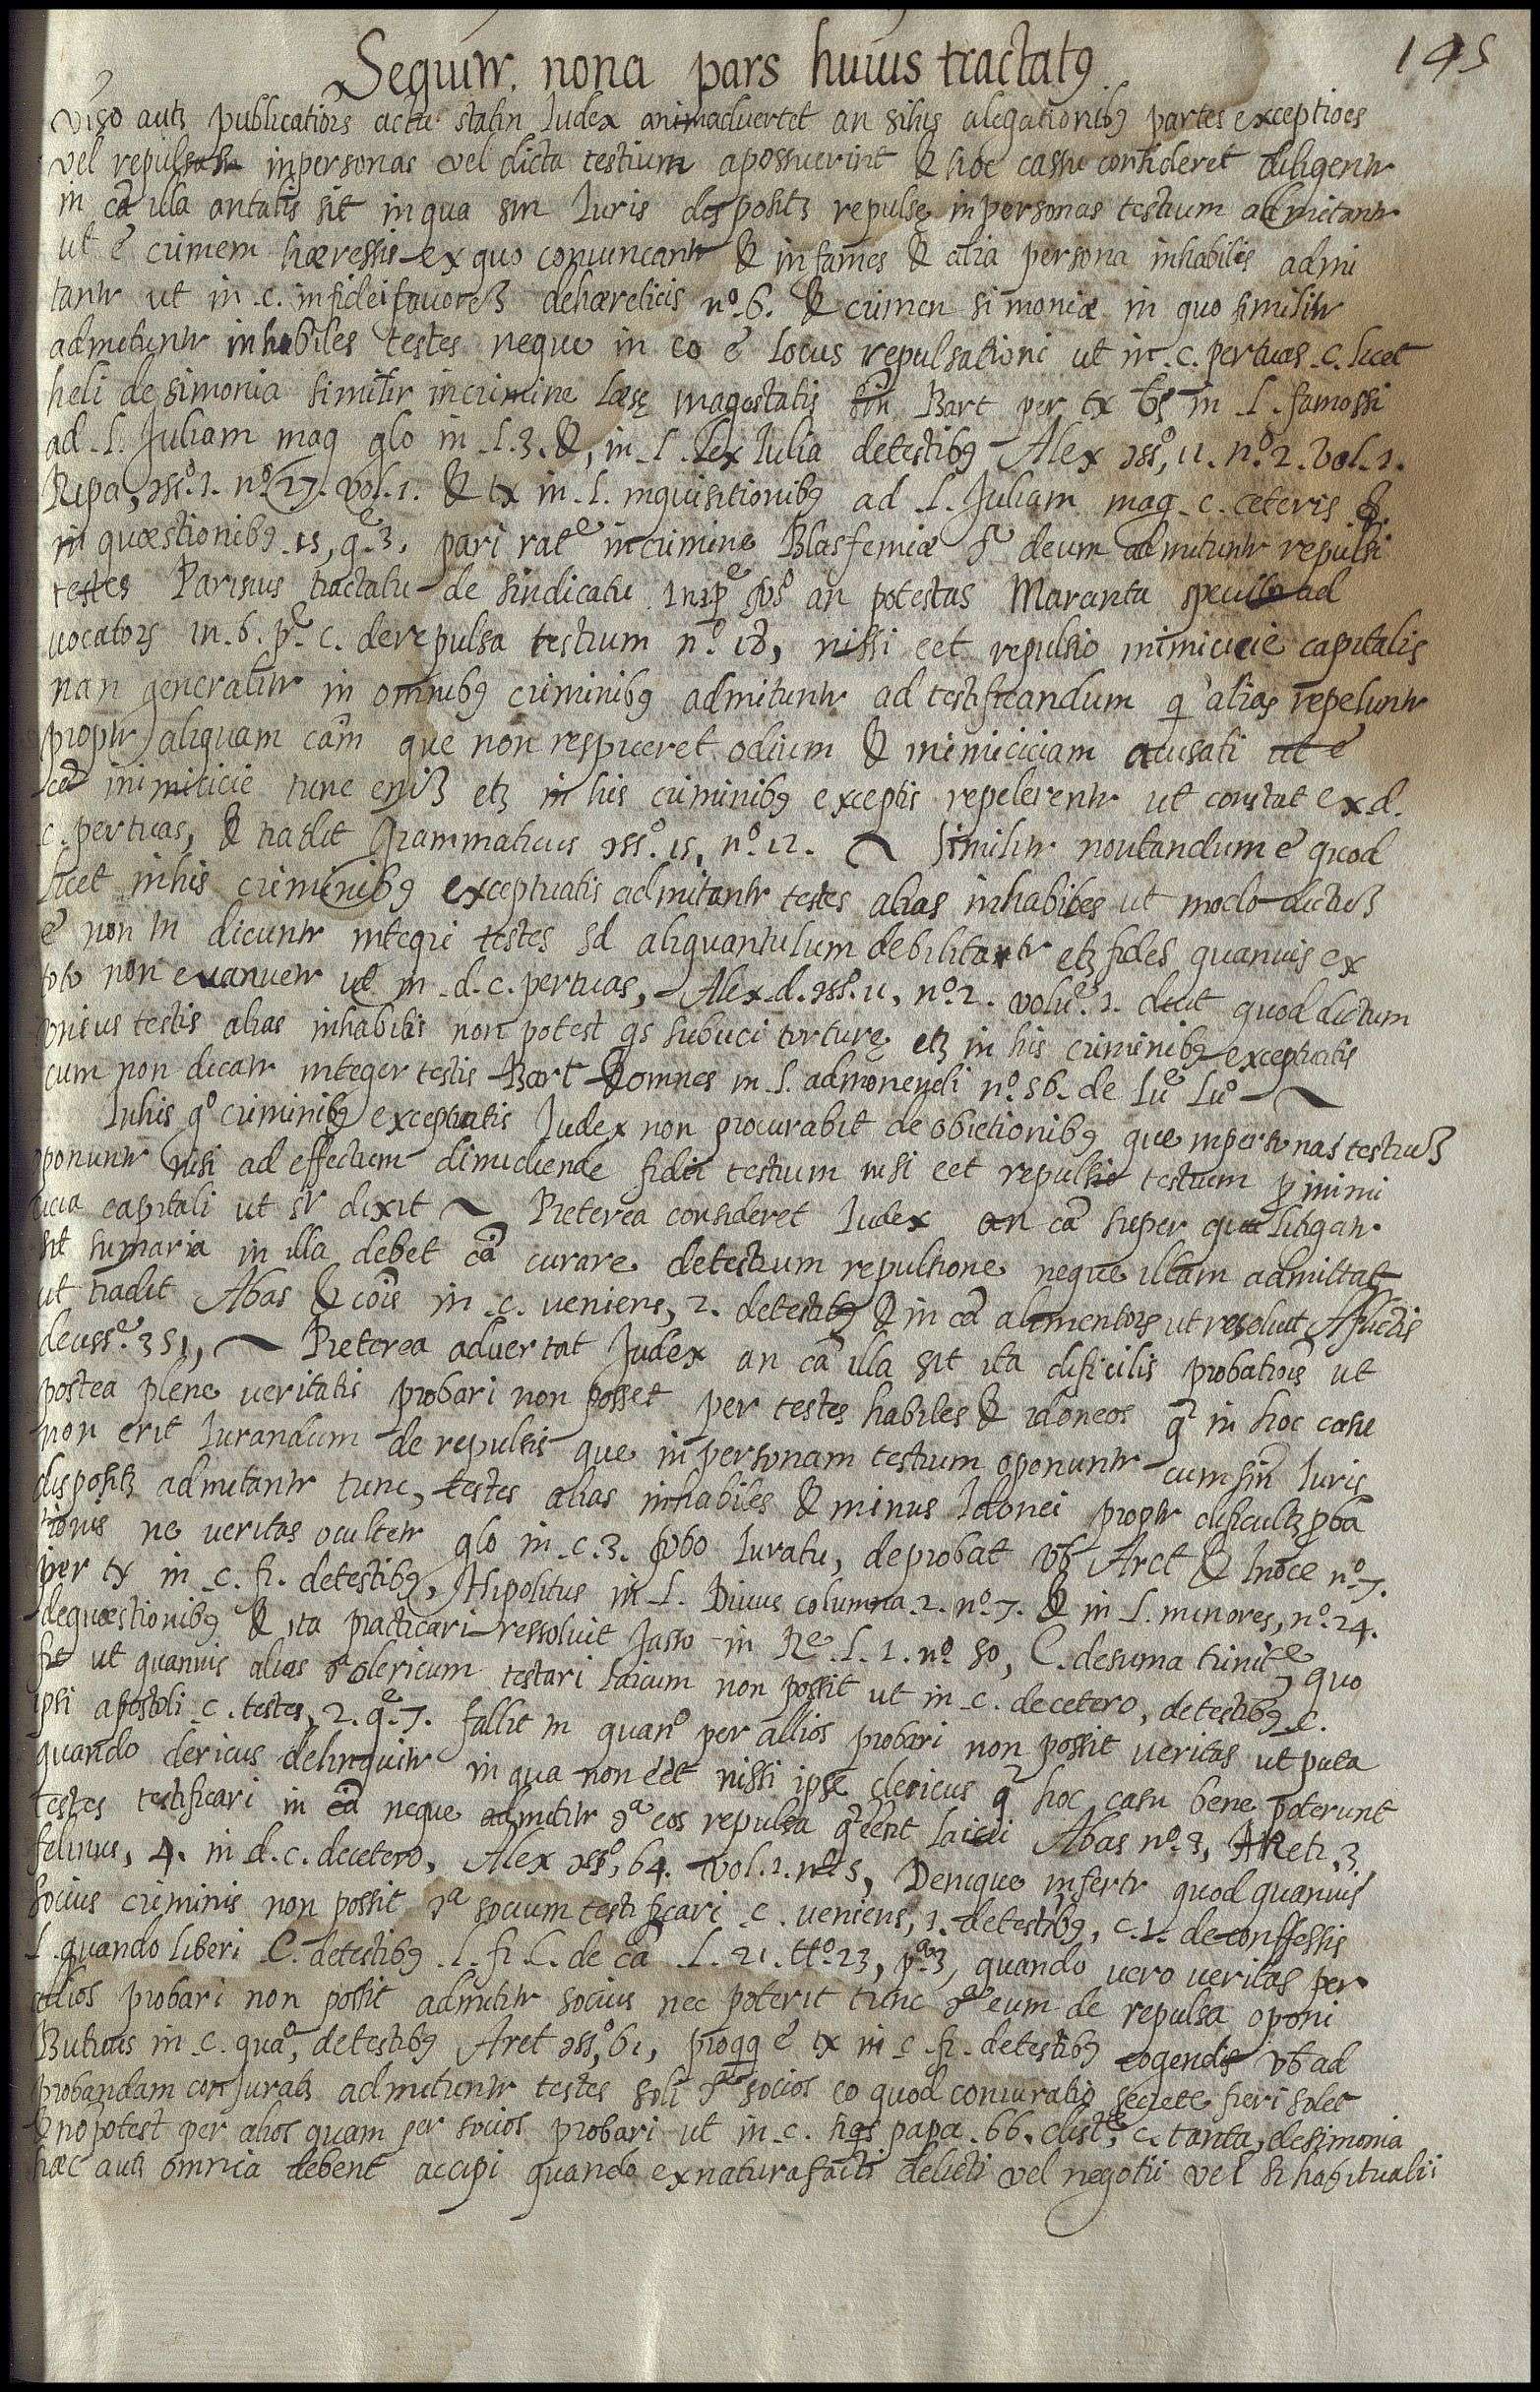 195
Sequitr. nona pars huius tractatꝰ
Viso autꝫ publicatiois actu statin Iudex animadvertet an sihis alegationibꝰ partes exceptioes
vel repulsas inpersonas vel dicta testium apossuerint & hoc cassu consideret diligentr
in cã illa antalis sit inqua sm Iuris despositꝫ repulsę inpersonas testium admitantr
ut ẽ crimem hæressis ex quo convincantr & infames & alia persona inhabilis admi
tantr ut in c. infidei favoreꝫ dehærelicis nº. 6. & crimen simoniæ in quo similitr
admituntr inhabiles testes neque in eo ẽ locus repulsationi ut in c. pertuas c. licet
heli de simonia similitr incrimine læsę magestatis sm Bart per tx in l. famossi
ad l. Juliam mag glo in l. 3. &, in l. lex Iulia detestibꝰ Alex ɔssº, 11. nº. 2. vol. 1.
Ripa, ɔssº. 1. nº. 27. vol. 1. & tx in l. inquisitionibꝰ ad l. Juliam mag c. ceteris &
in quæstionibꝰ 15, qẽ 3. pari ratẽ incrimine Blasfemiæ ɔª deum admituntr repulsi
testes Parisius tractatu de sindicatu an potestas Maranta specullo ad
vocators in. 6. pẽ. c. derepulsa testium nº. 18, nissi eet repulsio inimicicie capitalis
nan generalitr in omnibꝰ criminibꝰ admituntr ad testificandum q alias repeluntr
proptr aliquam cãm que non respiceret odium & inimiciciam acusati ut ẽ
cã inimicicie tunc eniꝫ etꝫ in his criminibꝰ exceptis repelerentr ut constat ex d.
c. pertuas, & tradit Grammaticus ɔssº. 15, nº. 12. ~ Similitr noutandum ẽ quod
licet inhis criminibꝰ exceptuatis admitantr testes alias inhabiles ut modo dictuꝫ
ẽ non tn dicuntr integri testes sd aliquantulum debilitantr etꝫ fides quanuis ex
toto non evanuetr ut in d. c. pertuas, Alex d. ɔssº. 11, nº. 2. voluẽ. 1. dicit quod dictum
unius testis alias inhabilis non potest qs subiici torturę etꝫ in his criminibꝰ exceptuatis
cum non dicatr integer testis Bart & omnes in l. admonendi nº. 56. de Iuẽ Iuº ~
Inhis gº criminibꝰ exceptuatis Iudex non procurabit de obietionibꝰ que inpersonas testiuꝫ
oponuntr nisi ad effectum dimidiende fidei testium nisi eet repulsio testium p inimi
cicia capitali ut sr dixit ~ Preterea consideret Iudex an cã super qua litigatr
sit sumaria in illa debet cã curare detestium repulsione neque illam admittat
ut tradit Abas & cõis in c. veniens, 2. detestibꝰ & in cã alimentors ut resolvit Aflictis
decissẽ. 351, ~ Preterea advertat Judex an cã illa sit ita dificilis probatiois ut
postea plene veritatis probari non posset per testes habiles & idoneos q in hoc casu
non erit Iurandum de repulsis que inpersonam testium oponuntr cum sm Iuris
dispositꝫ admitantr tunc, testes alias inhabiles & minus Idonei proptr dificultꝫ proba
tionis ne veritas ocultetr glo in c. 3. vbo Iuratu, deprobat vb Aret & Inoce nº. 7.
per tx in c. fi. detestibꝰ, Hipolitus in l. Divus columna. 2. nº. 7. & in l. minores, nº. 24.
dequæstionibꝰ & ita practicari ressolvit Jasso in Rẽ. l. 1. nº 50, C. desuma trinitẽ, quo
fit ut quanuis alias ɔª clericum testari laicum non possit ut in c. decetero, detestibꝰ c.
ipsi apostoli c. testes, 2. qẽ. 7. fallit in quanº per allios probari non possit veritas ut puta
quando clericus delinquitr in qua non eet nissi ipse clericus q hoc casu bene poterunt
testes testificari in cã neque admititr ɔª eos repulsa q eent laicii Abas nº. 3, Areti. 3,
felinus, 4. in d. c. decetero, Alex ɔssº, 64. vol. 1. nº. 5, Denique infertr quod quanuis
socius criminis non possit ɔª socium testificari c. veniens, 1. detestibꝰ, c. 1. de conffessis
l. quando liberi C. detestibꝰ. l. fi. C. de cã l. 21. ttº. 23, pª 3, quando vero veritas per
alios probari non possit admititr socius nec poterit tunc ɔª eum de repulsa oponi
Butrius in c. quaº, detestibꝰ Aret ɔssº, 61, pro qq ẽ tx in c. fi. detestibꝰ cogendis vb ad
probandam conjuratꝫ admituntr testes soli ɔª socios eo quod coniuratio secrete fieri solet
& nõ potest per alios quam per socios probari ut in c. sigs papa. 66. distẽ, c. tanta, desimonia
hæc autꝫ omnia debent accipi quando ex natura facti delicti vel negotii vel si habitualii